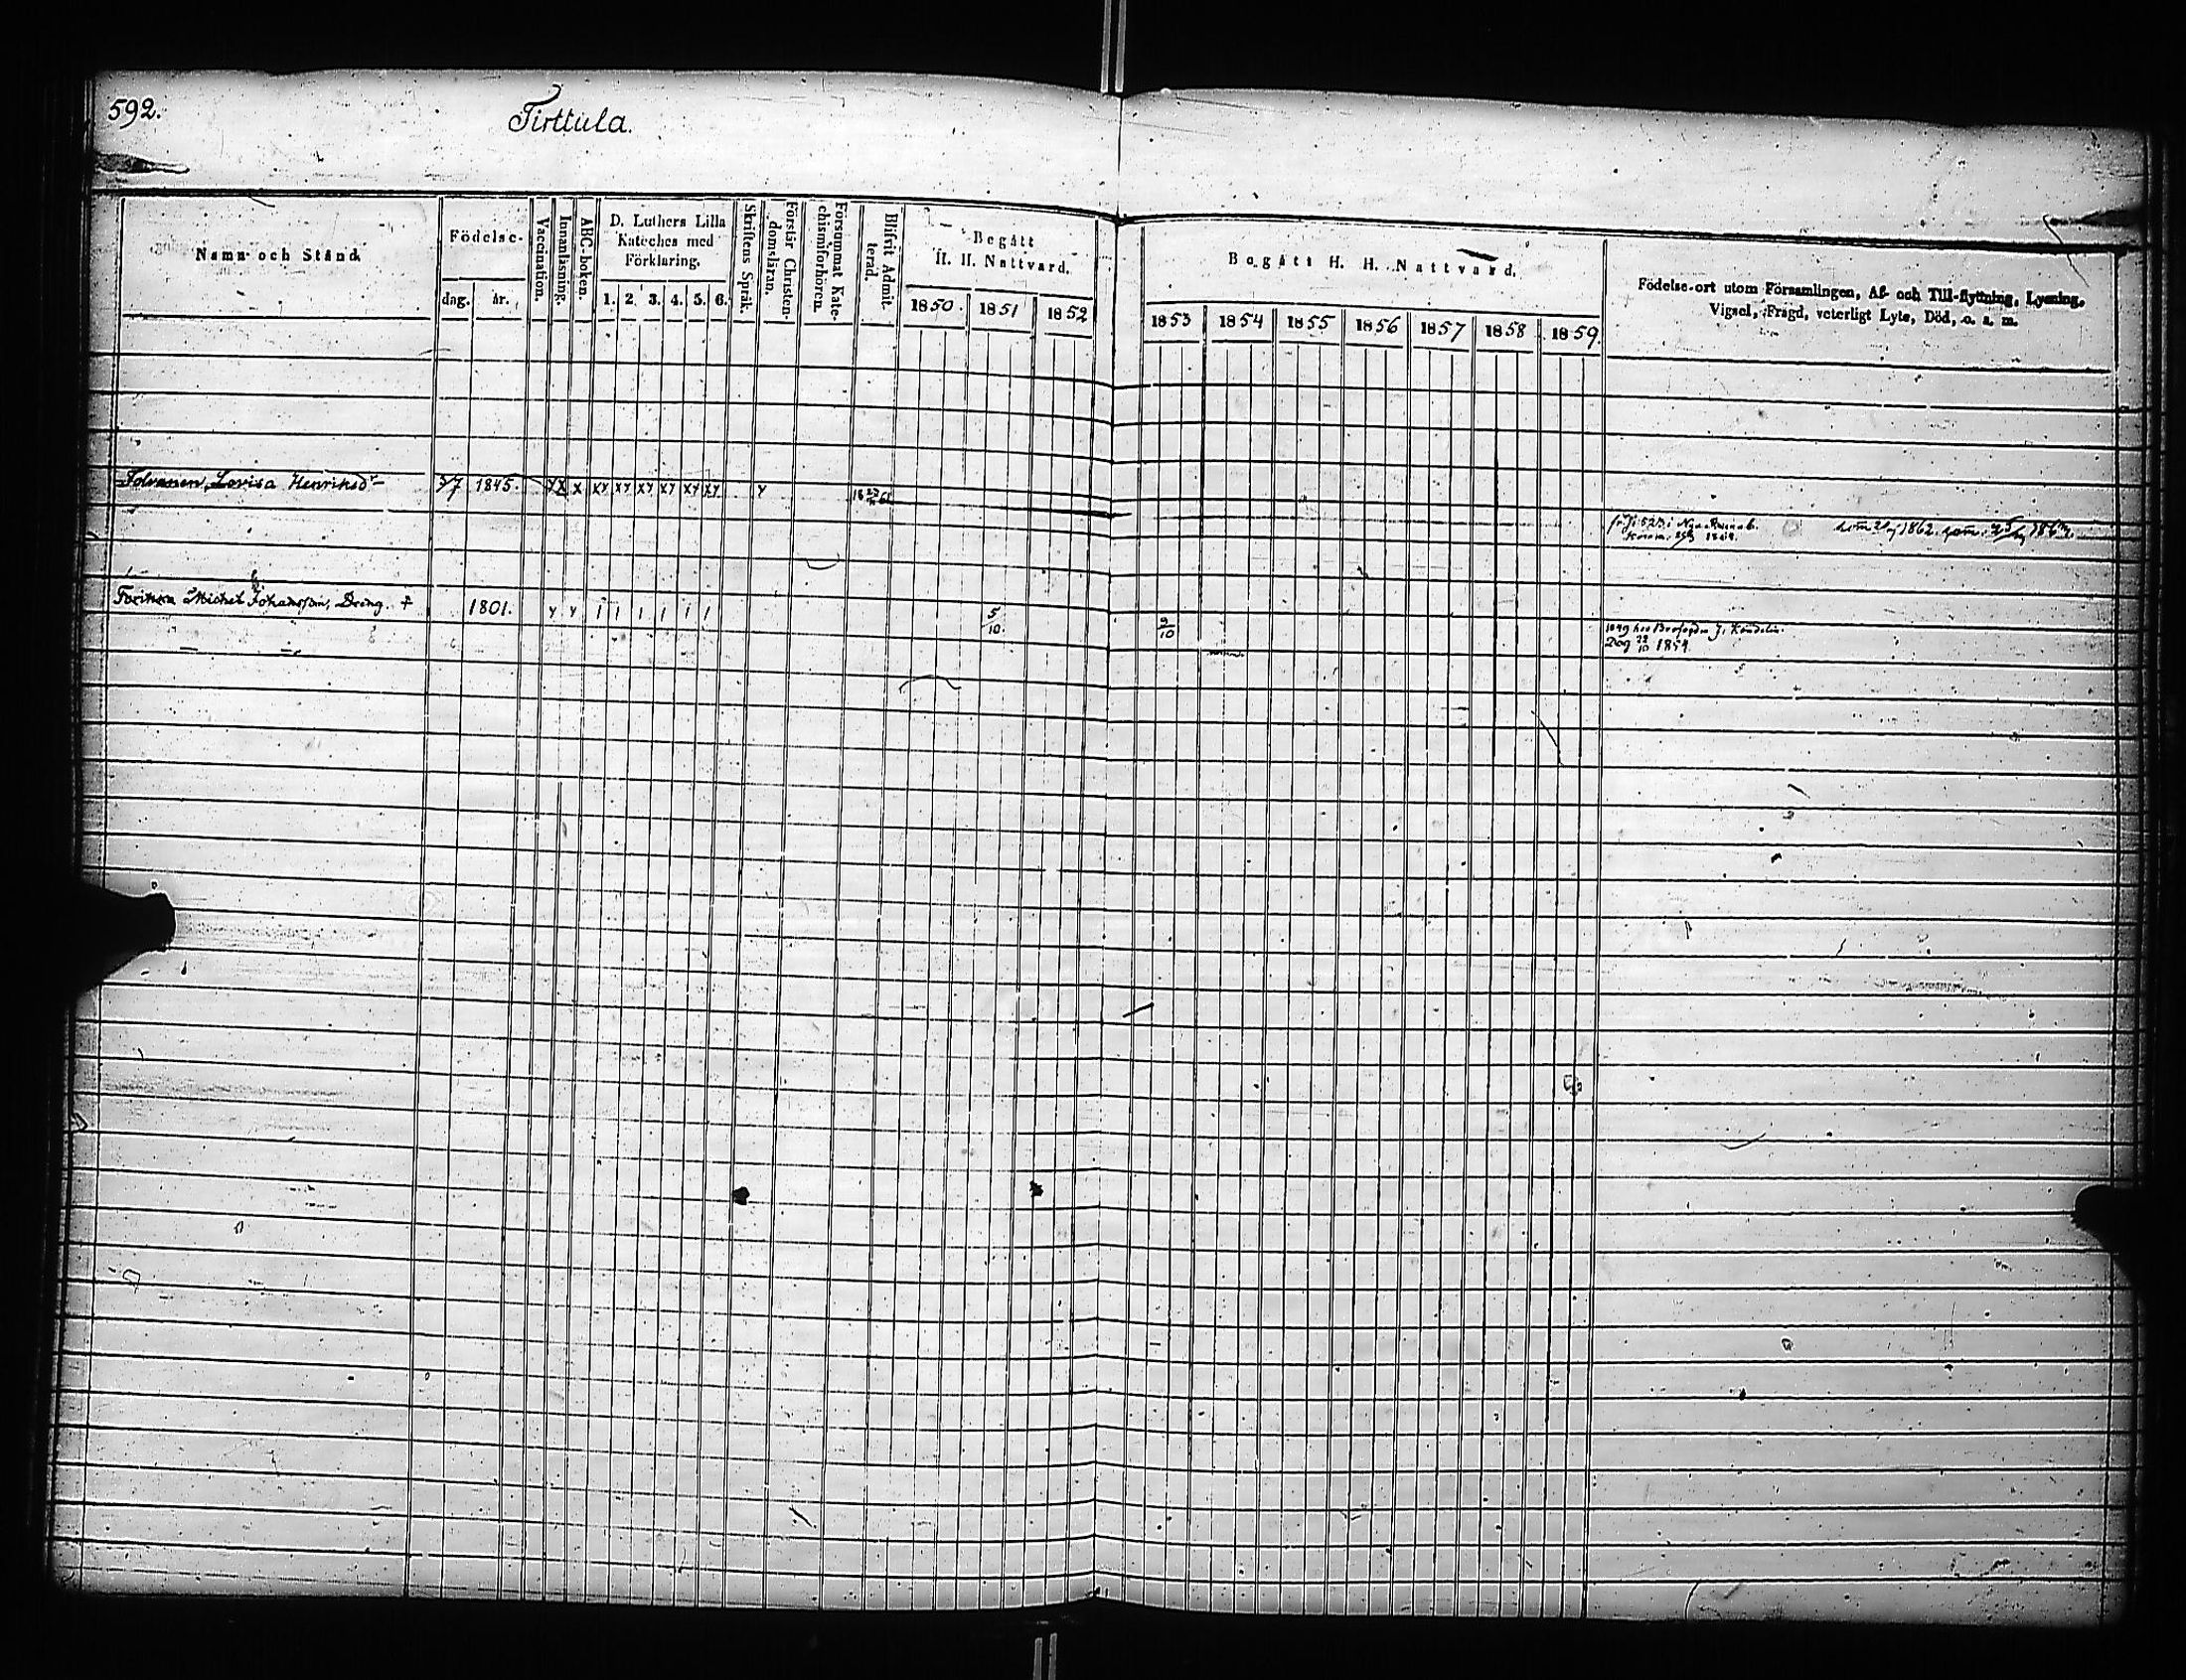 592.
Tirttula.
Namn och Stånd.
Födelse-
dag. år.
Vaccination.
Innanläsning.
ABC-boken.
D. Luthers Lilla
Kateches med
Förklaring.
1. 2. 3. 4. 5. 6.
Skriftens Språk.
Förstår Christen-
domsläran.
Försummat Kate-
chismiförhören.
Blifvit Admit-
terad.
Begått
H. H. Nattvard.
1850. 1851 1852
Begått H. H. Nattvard.
1853 1854 1855 1856 1857 1858 1859.
Födelse-ort utom Församlingen, Af- och Till-flyttning, Lysning,
Vigsel, Frägd, veterligt Lyte, Död, o. s. m.
Lovisa Henriksdr 5/7 1845. y x x xy xy xy xy xy xy y
1862.
Michel Johansson, Dreng. + 1801. y y 1 1 1 1 1 1 5/10. 9/10
1849 hos J.
Dog 22/10 1854.